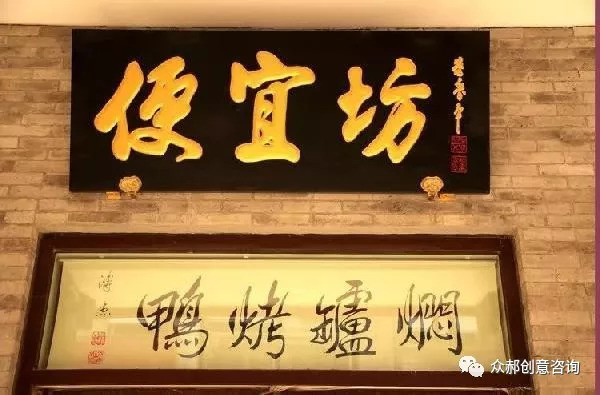 便宜坊
燜罏烤鴨
溥杰
众郝创意咨询